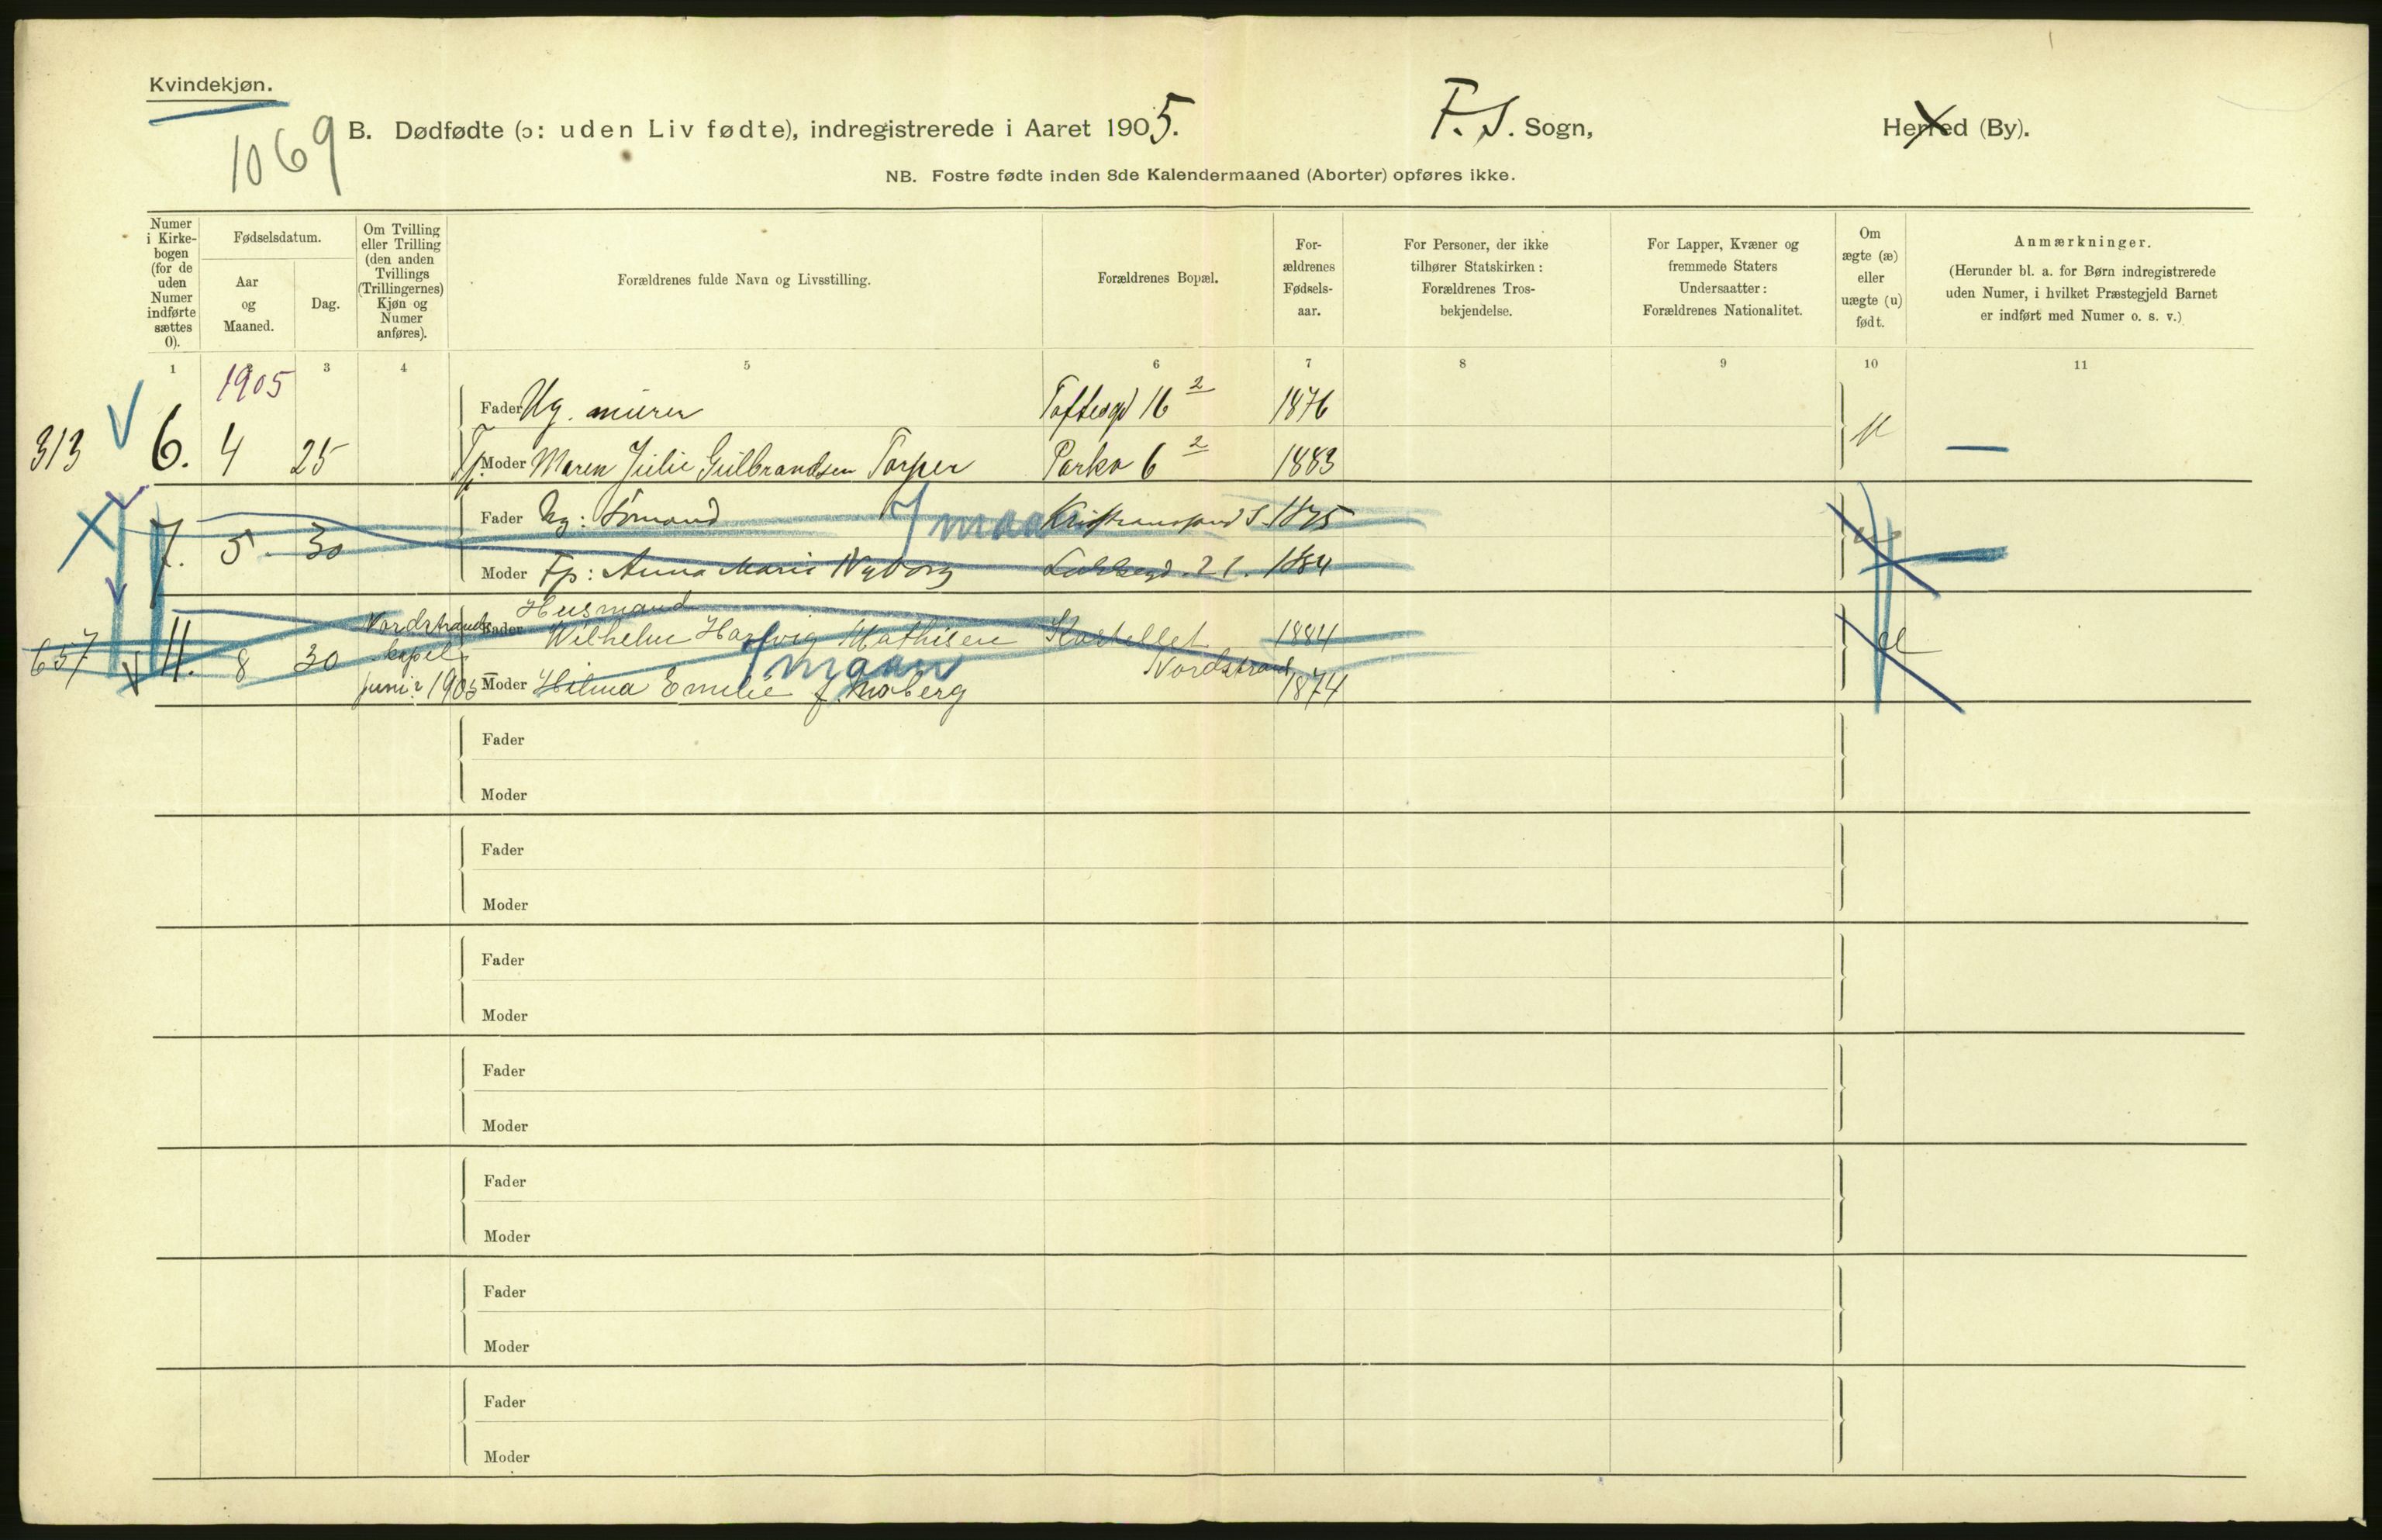 Kvindekjøn.
1069
B. Dødfødte (ɔ: uden Liv fødte), indregistrerede i Aaret 1905.
F. S. Sogn,
Herred (By).
NB. Fostre fødte inden 8de Kalendermaaned (Aborter) opføres ikke.
Numer i Kirkebogen (for de uden Numer indførte sættes 0).
Fødselsdatum.
Aar og Maaned.
Dag.
Om Tvilling eller Trilling (den anden Tvillings (Trillingernes) Kjøn og Numer anføres).
Forældrenes fulde Navn og Livsstilling.
Forældrenes Bopæl.
Forældrenes Fødselsaar.
For Personer, der ikke tilhører Statskirken: Forældrenes Trosbekjendelse.
For Lapper, Kvæner og fremmede Staters Undersaatter: Forældrenes Nationalitet.
Om ægte (æ) eller uægte (u) født.
Anmærkninger.
(Herunder bl. a. for Børn indregistrerede uden Numer, i hvilket Præstegjeld Barnet er indført med Numer o. s. v.)
1 2 3 4 5 6 7 8 9 10 11
1905
Fader Ug. murer Toftesgd 16 2 1876
313 6. 4 25 Fp. Moder Maren Julie Gulbrandsen Torper Parkv 6 2 1883 u —
Fader Ug: Sømand 7 maan Kristianssand S. 1875
7. 5 30 Moder Fp: Anna Marie Nyborg 21. 1884 u
Nordstrands kapel juni 1905
Husmand
Fader Wilhelm Hartvig Mathisen Kastellet 1884
657 11. 8 30 maan Nordstrand
Moder Hilma Emilie f. Moberg 1874
Fader
Moder
Fader
Moder
Fader
Moder
Fader
Moder
Fader
Moder
Fader
Moder
Fader
Moder